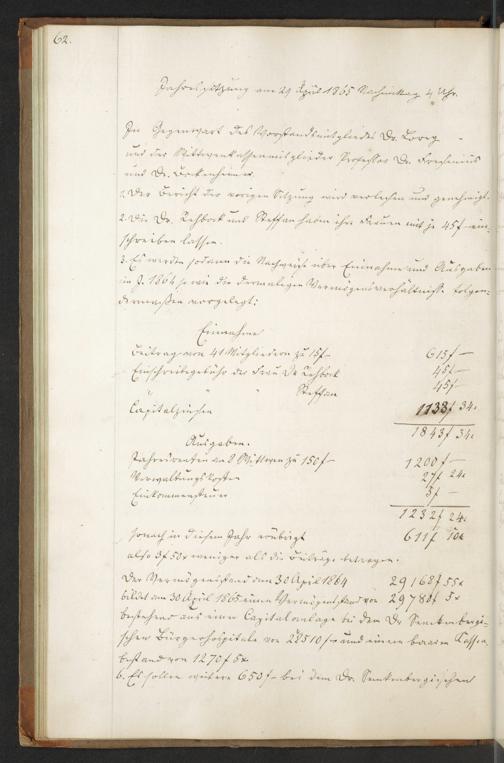 62.
Jahressitzung am 29 April 1865 Nachmittag 4 Uhr.
In Gegenwart des Vorstandsmitgliedes Dr. Lorey
und der Wittwenkassenmitglieder Professor Dr. Fresenius
und Dr. Bockenheimer.
1. Der Bericht der vorigen Sitzung wird verlesen und genehmigt.
2. Die Dr. Rehbock und Steffan haben ihre Frauen mit je 45f ein-
schreiben lassen.
3. Es werden sodann die Nachweise über Einnahme und Ausgaben
im J. 1864 sowie die dermaligen Vermögensverhältnisse folgen-
dermaßen vorgelegt:
Einnahme
Beitrag von 41 Mitgliedern zu 15f — 615f —
Einschreibegebühr der Frau Dr Rehbock 45f —
" " " Steffan 45f —
Capitalzinsen 1138f 34.
1843f 34.
Ausgaben.
Jahresrenten an 8 Wittwen zu 150f — 1200f —
Verwaltungskosten 29f 24.
Einkommensteuer 3f —
1232f 24.
sonach in diesem Jahr erübrigt 611f 10x
also 3f 50x weniger als die Beiträge betragen.
Der Vermögensstand am 30 April 1864 29168f 55x
bildet am 30 April 1865 einen Vermögensstand von 29780f 5x
bestehend aus einer Capitalanlage bei dem Dr Senckenbergi-
schen Bürgerhospitale von 28510f — und einem baaren Cassen-
bestand von 1270f 5x
6. Es sollen weitere 650f — bei dem Dr. Senckenbergischen